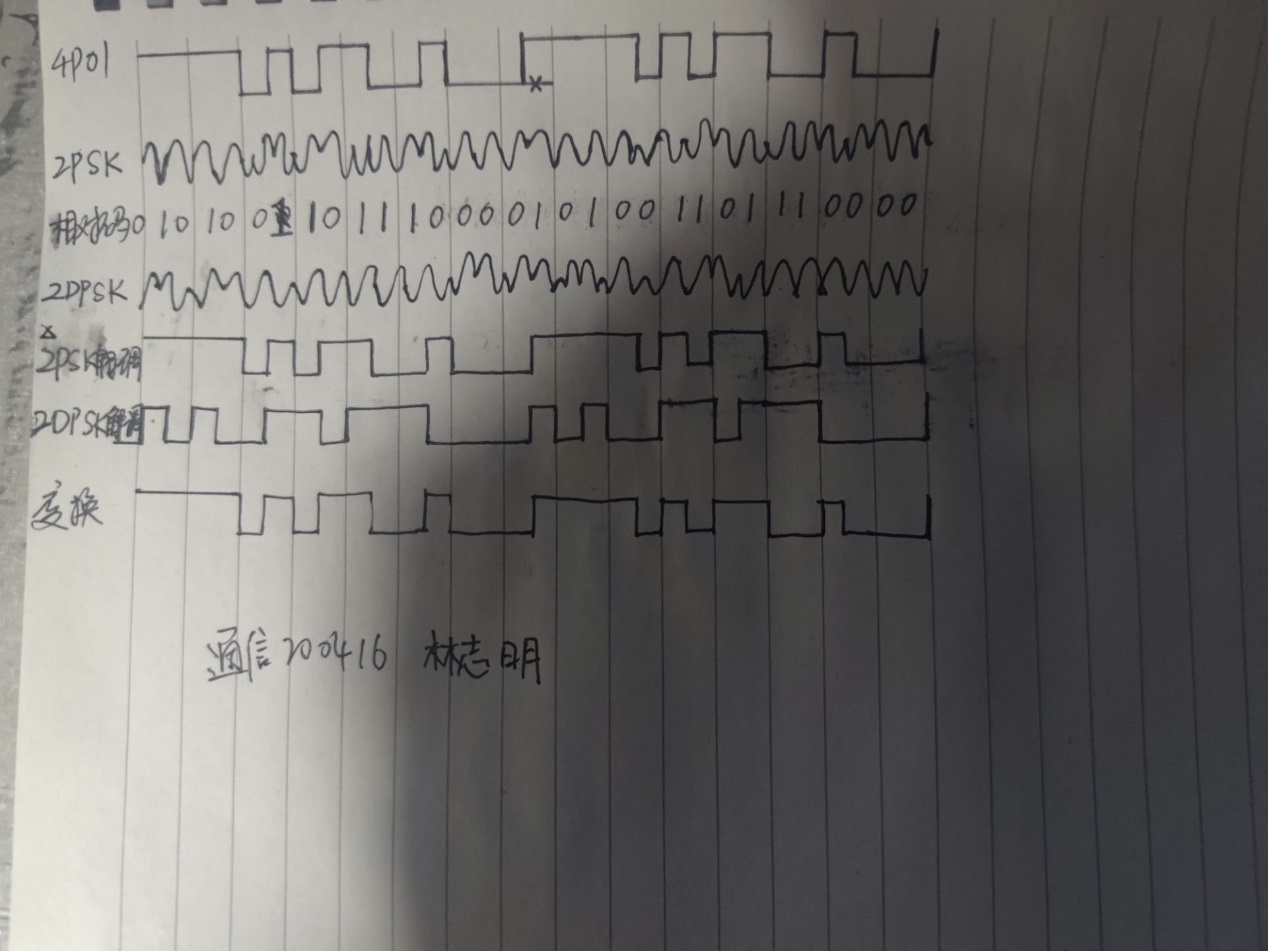 4P01
2PSK
相对码0 1 0 1 0 0 1 1 0 1 1 1 0 0 0 0 1 0 1 0 0 1 1 0 1 1 1 0 0 0 0
2DPSK
x
2PSK解调
2DPSK解调
变换
通信200416 林志明